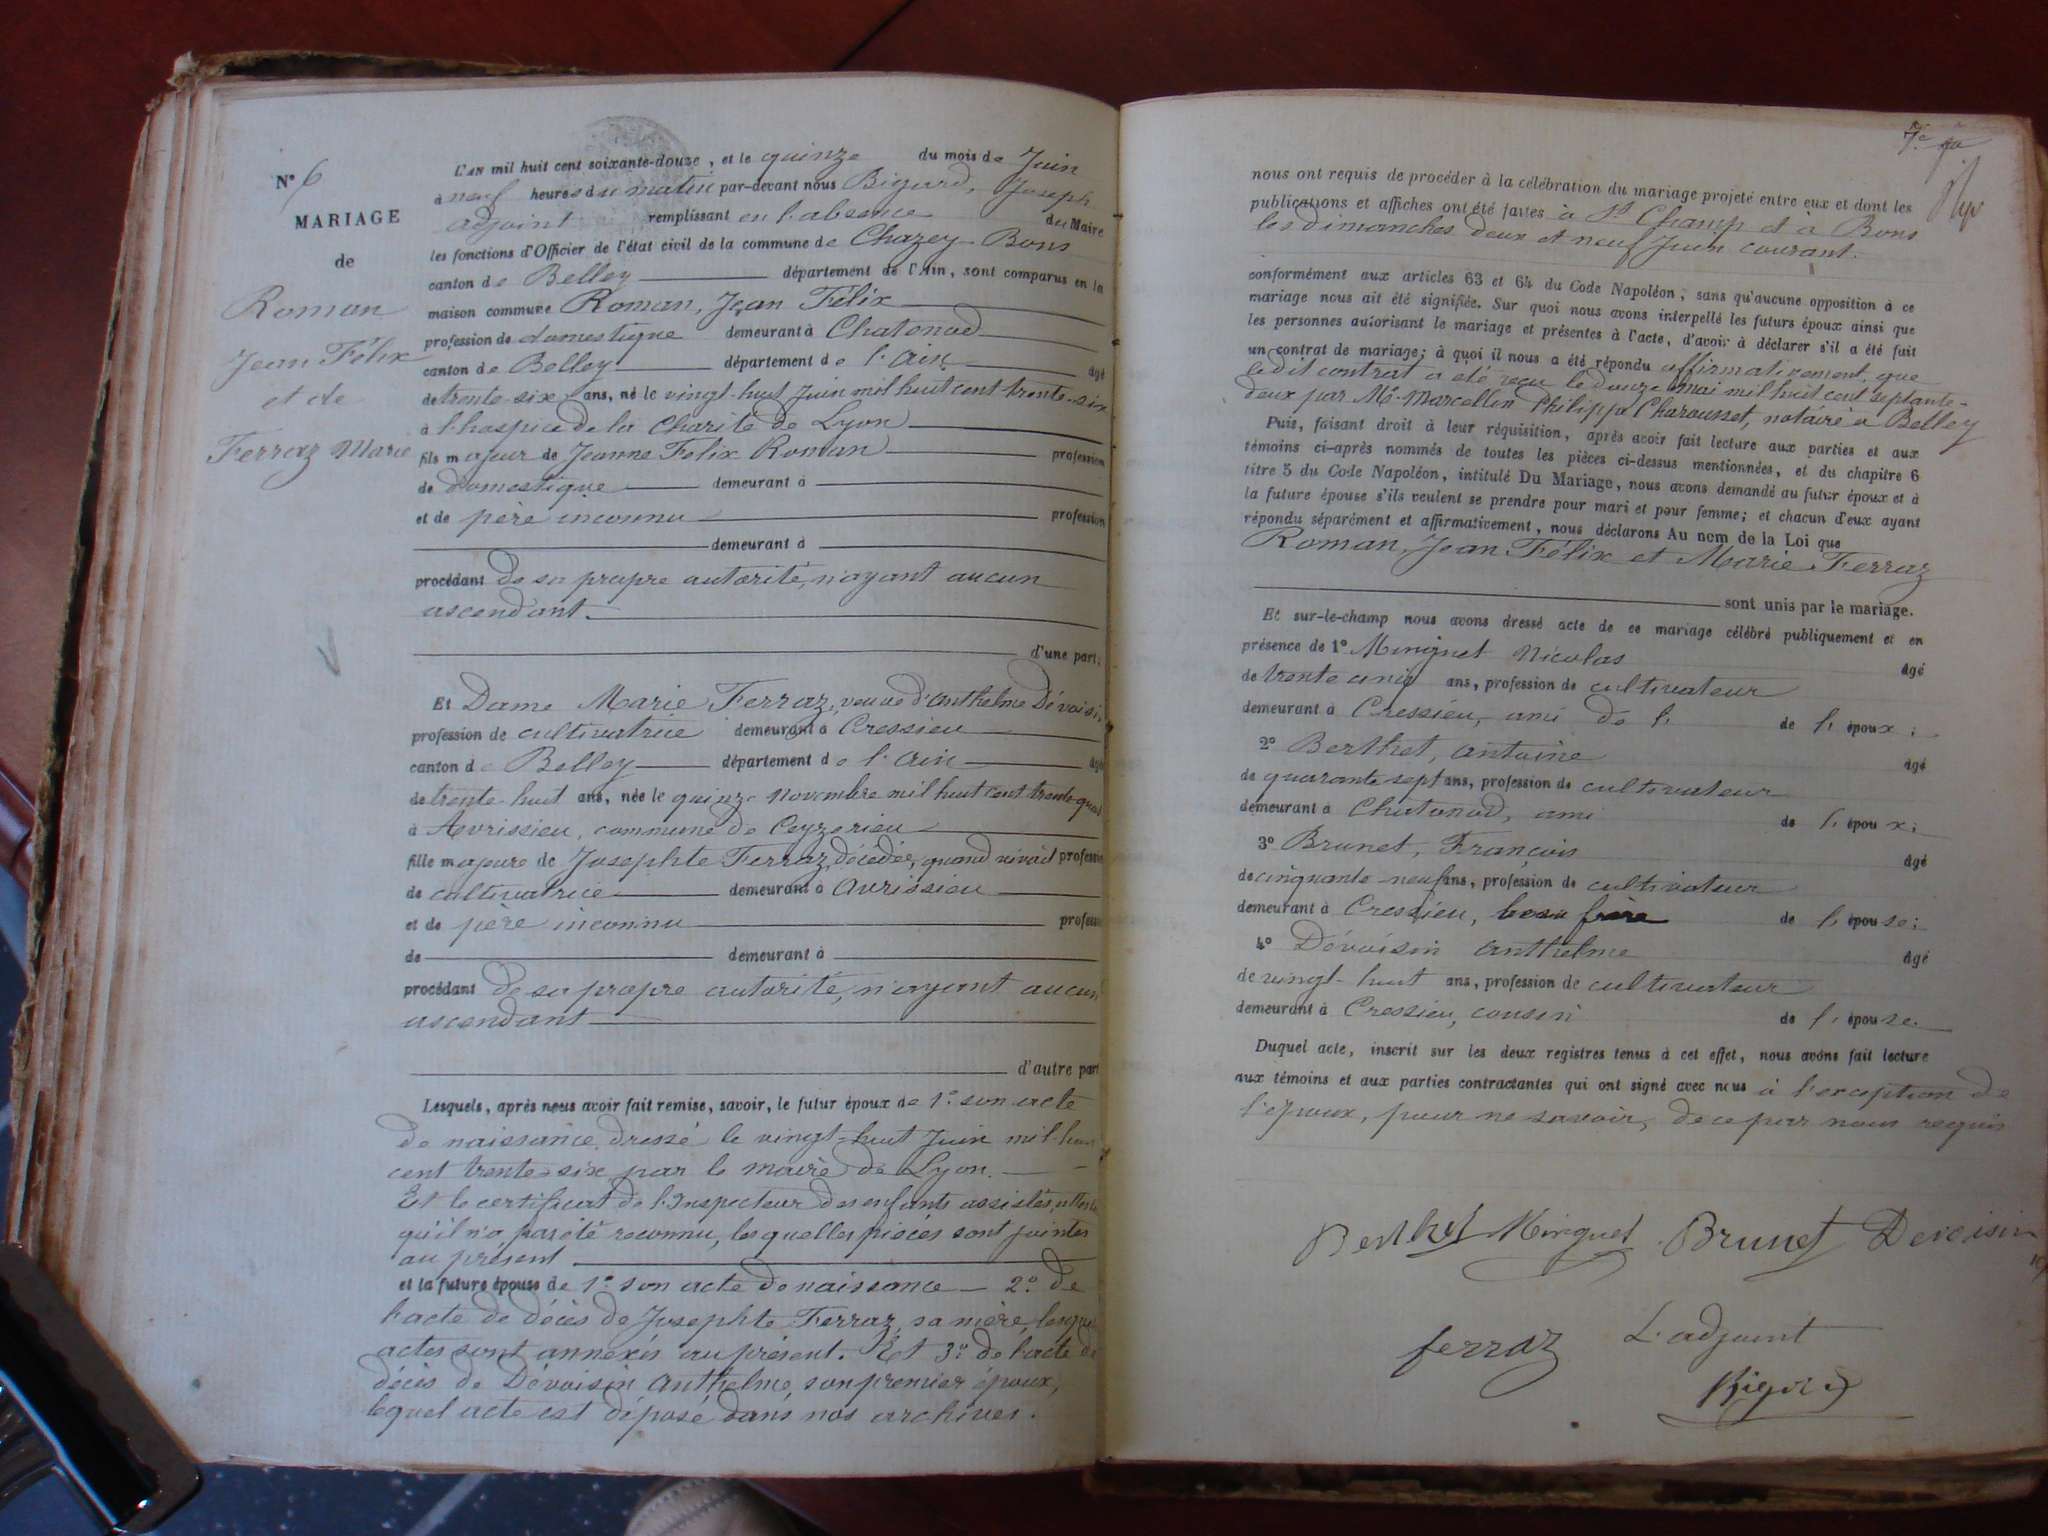 N° 6
MARIAGE
de
Roman
Jean Félix
et de
Ferraz Marie
L'AN mil huit cent soixante-douze, et le quinze du mois de Juin
à neuf heures du matin par-devant nous Bigard, Joseph
adjoint remplissant en l'absence du Maire
les fonctions d'Officier de l'état civil de la commune de Chazey-Bons
canton de Belley département de l'Ain, sont comparus en la
maison commune Roman, Jean Félix
profession de domestique demeurant à Chatonod
canton de Belley département de l'Ain âgé
de trente-six ans, né le vingt-huit Juin mil huit cent trente-six
à l'hospice de la Charité de Lyon
fils majeur de Jeanne Félix Roman profession
de domestique demeurant à
et de père inconnu profession
demeurant à
procédant de sa propre autorité, n'ayant aucun
ascendant.
d'une part;
Et Dame Marie Ferraz, veuve d'Anthelme Dévoisi
profession de cultivatrice demeurant à Cressieu
canton de Belley département de l'Ain âgé
de trente-huit ans, née le quinze Novembre mil huit cent trente-quat
à Avrissieu, commune de Ceyzerieu
fille majeure de Josephte Ferraz, décédée, quand vivait professio
de cultivatrice demeurant à Avrissieu
et de père inconnu profess
de demeurant à
procédant de sa propre autorité, n'ayant aucun
ascendant
d'autre part
Lesquels, après nous avoir fait remise, savoir, le futur époux de 1° son acte
de naissance dressé le vingt-huit Juin mil huit
cent trente-six par le maire de Lyon.
Et le certificat de l'Inspecteur des enfants assistés,
qu'il n'a pas été reconnu, lesquelles pièces sont jointes
au présent
et la future épouse de 1° son acte de naissance - 2° de
l'acte de décès de Josephte Ferraz, sa mère, lesque
actes sont annéxés au présent. Et 3° de l'acte de
décès de Dévoisin Anthelme, son premier époux,
lequel acte est déposé dans nos archives.
nous ont requis de procéder à la célébration du mariage projeté entre eux et dont les
publications et affiches ont été faites à St Champ et à Bons
les dimanches deux et neuf Juin courant.
conformément aux articles 63 et 64 du Code Napoléon, sans qu'aucune opposition à ce
mariage nous ait été signifiée. Sur quoi nous avons interpellé les futurs époux ainsi que
les personnes autorisant le mariage et présentes à l'acte, d'avoir à déclarer s'il a été fait
un contrat de mariage; à quoi il nous a été répondu affirmativement, que
ledit contrat a été reçu le douze mai mil huit cent septante-
deux par Me Marcellin Philippe Charousset, notaire à Belley
Puis, faisant droit à leur réquisition, après avoir fait lecture aux parties et aux
témoins ci-après nommés de toutes les pièces ci-dessus mentionnées, et du chapitre 6
titre 5 du Code Napoléon, intitulé Du Mariage, nous avons demandé au futur époux et à
la future épouse s'ils veulent se prendre pour mari et pour femme; et chacun d'eux ayant
répondu séparément et affirmativement, nous déclarons Au nom de la Loi que
Roman, Jean Félix et Marie Ferraz
sont unis par le mariage.
Et sur-le-champ nous avons dressé acte de ce mariage célébré publiquement et en
présence de 1° Minguet Nicolas âgé
de trente ans, profession de cultivateur
demeurant à Cressieu, ami de l' de l'époux;
2° Berthet, Antoine âgé
de quarante-sept ans, profession de cultivateur
demeurant à Chatonod, ami de l'époux;
3° Brunet, François âgé
de cinquante-neuf ans, profession de cultivateur
demeurant à Cressieu, beau frère de l'épouse;
4° Dévoisin Anthelme âgé
de vingt-huit ans, profession de cultivateur
demeurant à Cressieu, cousin de l'épouse.
Duquel acte, inscrit sur les deux registres tenus à cet effet, nous avons fait lecture
aux témoins et aux parties contractantes qui ont signé avec nous à l'exception de
l'époux, pour ne savoir, de ce par nous requis
Berthet Minguet Brunet Devoisin
ferraz L'adjoint
Bigard